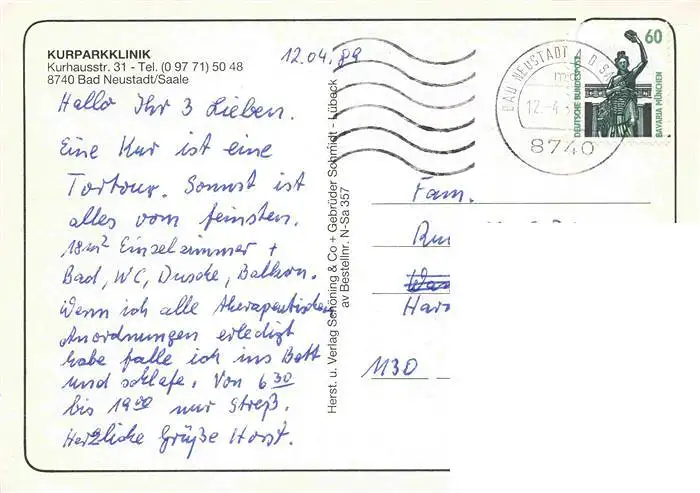 KURPARKKLINIK
Kurhausstr. 31 - Tel. (0 97 71) 50 48
8740 Bad Neustadt/Saale
12.04.89
Hallo Ihr 3 Lieben.
Eine Kur ist eine
Tortour. Sonnst ist
alles vom feinsten.
18m² Einzelzimmer +
Bad, WC, Dusche, Balkon.
Wenn ich alle therapeutischen
Anordnungen erledigt
habe falle ich ins Bett
und schlafe. Von 6 30
bis 19 00 nur Streß.
Herzliche Grüße Horst.
Herst. u. Verlag Schöning & Co + Gebrüder Schmidt - Lübeck
av Bestellnr. N-Sa 357
BAD NEUSTADT A D SA
12.-4.
8740
60
DEUTSCHE BUNDESPOST
BAVARIA MÜNCHEN
Fam.
1130